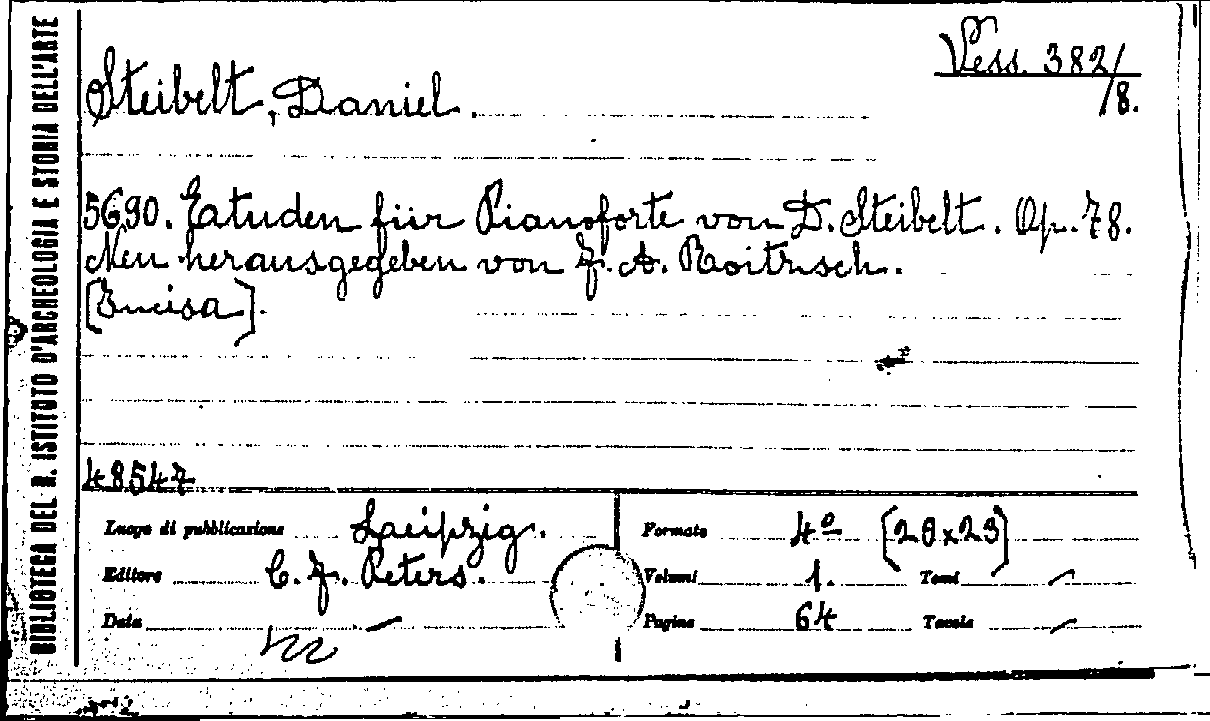 BIBLIOTEGA DEL R. ISTITOTO D'ARCHEOLOGIA E STORIA DELL'ARTE
Vess. 382/
/8.
Steibelt, Daniel.
5690. Eatuden für Pianoforte von D. Steibelt. Op. 78.
Neu herausgegeben von F. A. Roitzsch.
[Incisa].
48547
Luogo di pubblicazione Laeipzig.
Editore C. F. Peters.
Data —
Formato 4º [28x23]
Volumi 1. Tomi —
Pagine 64 Tavole —